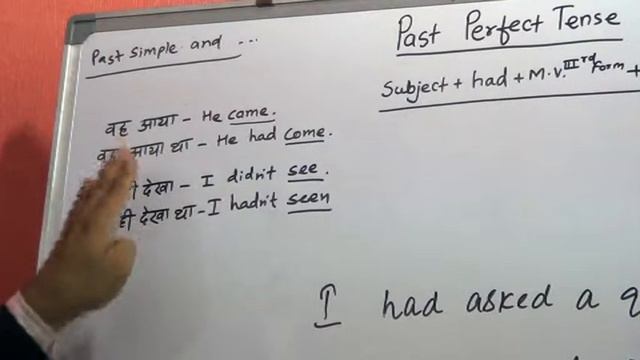 Past Simple and ...
वह आया - He came.
आया था - He had come.
देखा - I didn't see.
ही देखा था - I hadn't seen
Past Perfect Tense
Subject + had + M.V. IIIrd form +
I had asked a